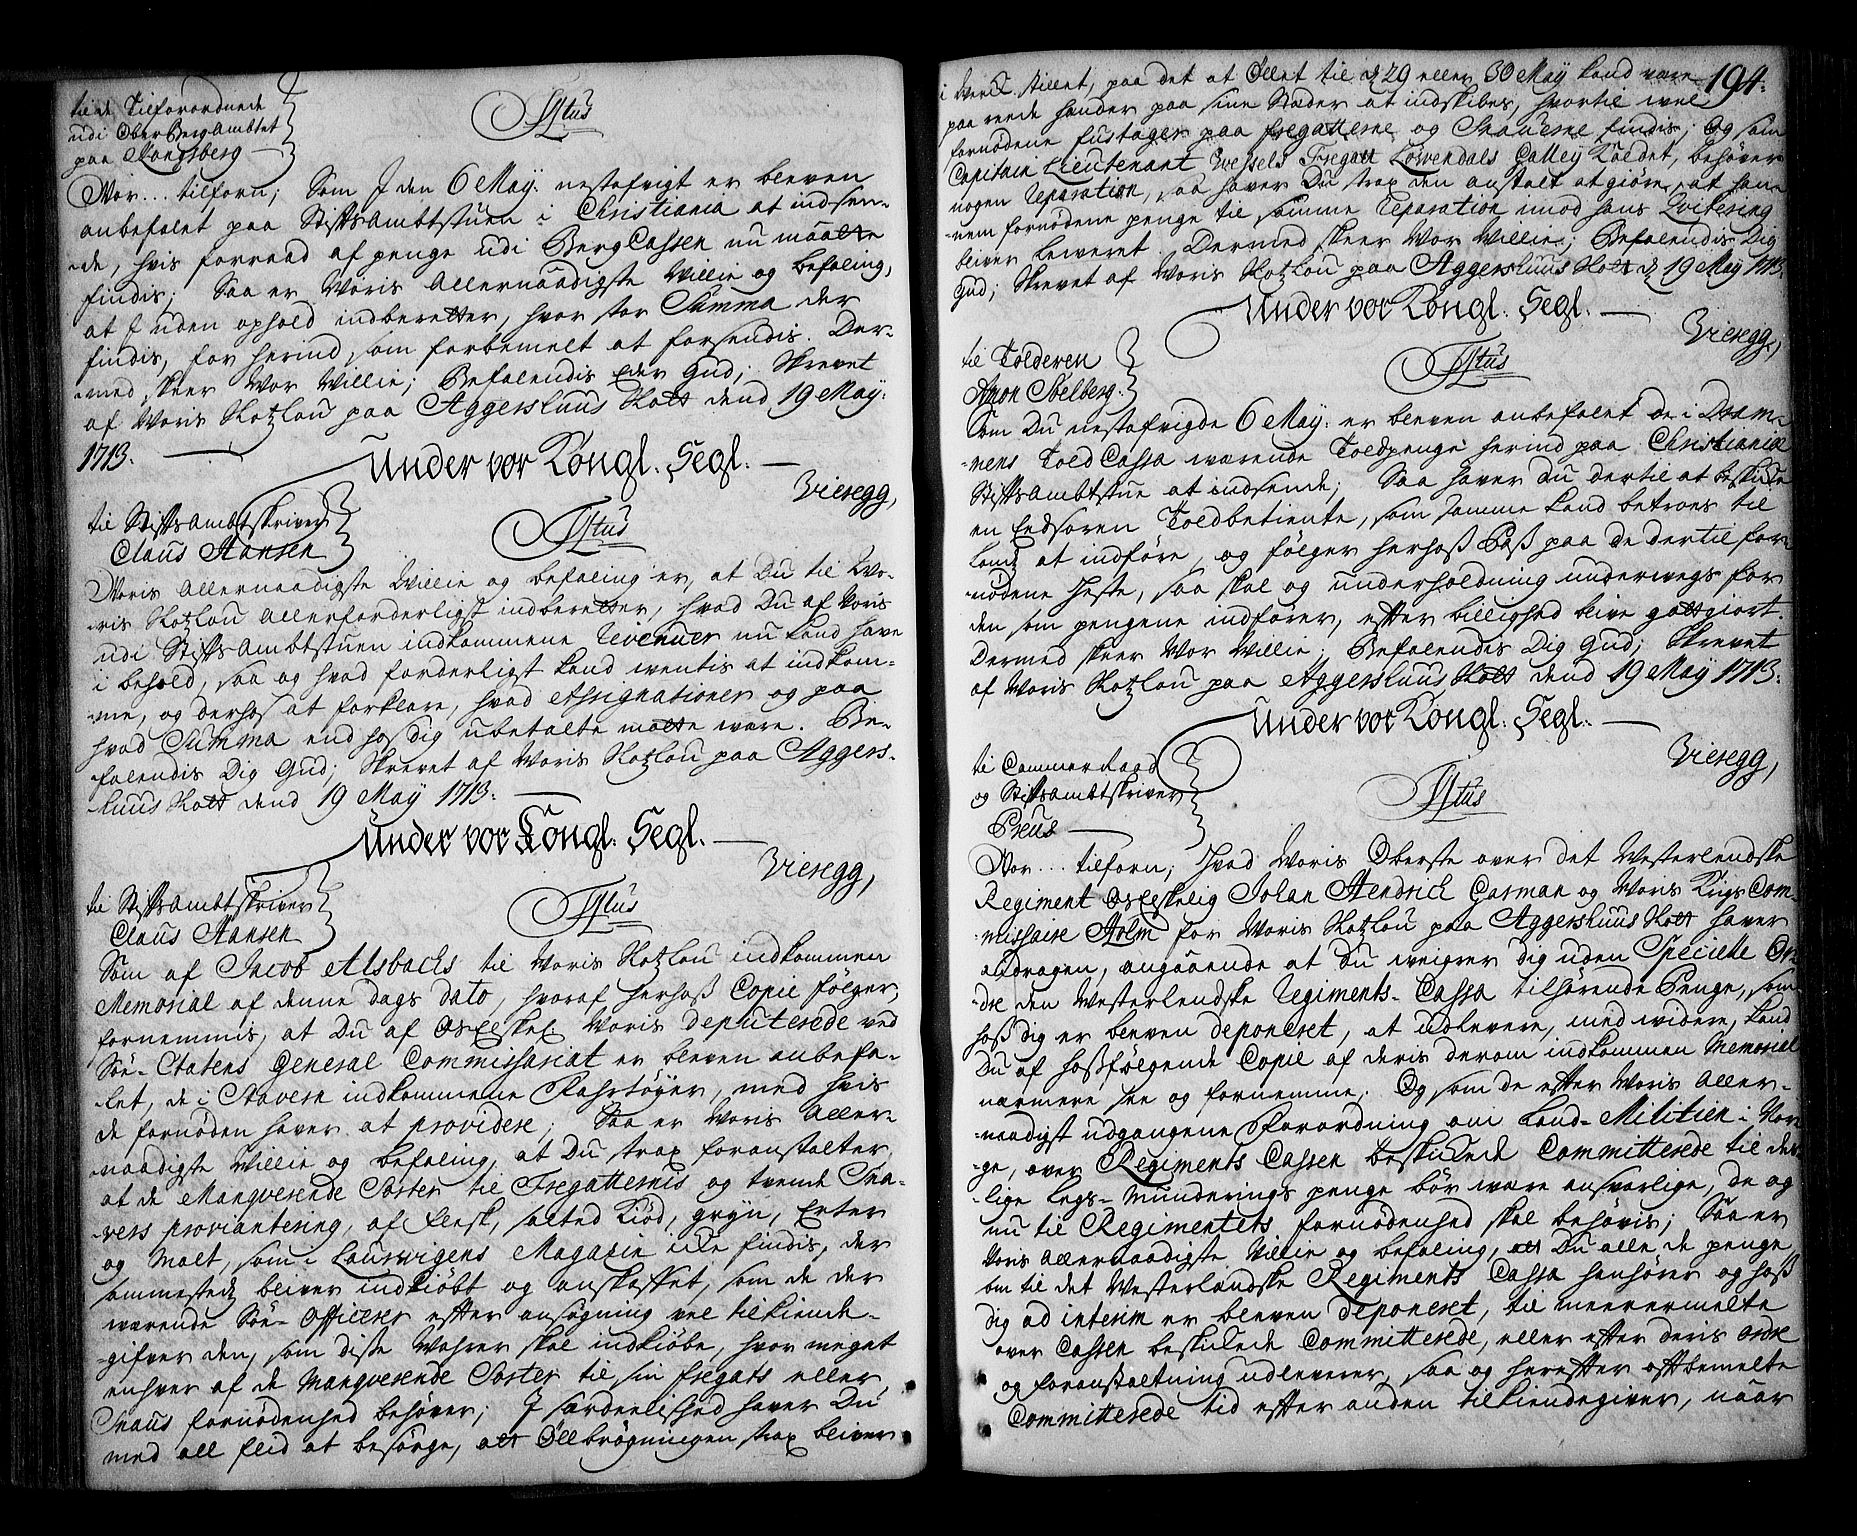 til de Tilforordnede
udi OberBergAmbtet
paa Kongsberg
Vor... tilforn; Som I den 6 May: nestafvigt er bleven
anbefalet paa StiftsAmbtstuen i Christiania at indsen-
de, hvis forraad af penge udi BergCassen nu maatte
findis; Saa er Voris Allernaadigste Villie og befaling,
at I uden ophold indberetter, hvor stor Summa der
findis, for herind, som forbemelt at forsendis. Der-
med skeer Vor Villie; Befalendis Eder Gud; Skrevet
af Voris Slotzlou paa Aggershuus Slott dend 19 May:
1713.
Under vor Kongl. Segl.
Vieregg,
til StiftsAmbtskriver
Claus Hansen
Voris Allernaadigste Willie og befaling er, at Du til Wo-
ris Slotzlou Allerforderligst indberetter, hvad Du af Voris
udi StiftsAmbtstuen indkommene Revenuer nu kand have
i behold, saa og hvad forderligt kand wentis at indkom-
me, og derhos at forklare, hvad Assignationer og paa
hvad Summa end hos dig ubetalte maatte ware. Be-
falendis Dig Gud; Skrevet af Voris Slotzlou paa Aggers-
huus Slott dend 19 May 1713.
Under vor Kongl. Segl.
Vieregg,
til StiftsAmbtskriver
Claus Hansen
Som af Jacob Alsbachs til Voris Slotzlou indkommen
Memorial af denne dags dato, hvoraf herhoß Copie følger,
fornemmis, at Du af Voris deputerede ved
Søe-Etatens General Commissariat er bleven anbefa-
let, de i Stavern indkommene Fahrtøyer, med hvis
de fornøden haver at providere; Saa er Voris Aller-
naadigste Villie og befaling, at Du strax foranstalter,
at de Manqverende Poster til Fregatternis og tvende Sna-
vers proviantering, af Flesk, salted Kiød, gryn, Erter
og Malt, som i Laurwigens Magazin icke findis, der
sammestedz bliver indkiøbt og anskaffet, som de der
værende Søe-Officerer efter ansøgning vel tilkiende-
gifver den, som diße Wahrer skal indkiøbe, hvor meget
enhver af de Manqverende Poster til sin Fregats eller
Snaus fornødenhed behøver; I særdelished haver Du
med all flid at besørge, att Ølbrøgningen strax bliver
194.
i verck stillet, paa det at Øllet til d 29 eller 30 May kand være
paa rede hænder paa sine Stæder at indskibes, hvortil well
fornødene fustager paa fregatterne og Snauerne findis; Og som
Capitain Lieutenant Wessels Fregatt Løwendals Galley kaldet, behøver
nogen Reparation, saa haver Du strax den anstalt at giøre, at han-
nem fornødene penge til samme Reparation imod hans Qvitering
bliver leweret. Dermed skeer Vor Villie; Befalendis Dig
Gud; Skrevet af Voris Slotzlou paa Aggershuus Slott d 19 May 1713.
Under vor Kongl. Segl.
Vieregg,
til Tolderen
Amon Stelberg.
Som Du nestafvigde 6 May: er bleven anbefalet de i Dram-
mens ToldCassa wærende Toldpenge herind paa Christianiæ
StiftsAmbtstue at indsende; Saa haver Du dertil at beskicke
en Eedsoren Toldbetiente, som samme kand betroes til
landz at indføre, og følger herhoß Paß paa de dertil for-
nødene Heste, saa skal og underholdning underwegs for
den som pengene indfører, efter billighed blive gottgiort.
Dermed skeer Vor Villie; Befalendis Dig Gud; Skrevet
af Voris Slotzlou paa Aggershuus Slott dend 19 May 1713.
Under vor Kongl. Segl.
Vieregg,
til CammerRaad
og StiftsAmbtskriver
Preus
Vor... tilforn; Hvad Voris Oberste over det Westerlendske
Regiment Johan Hendrich Garman og Voris KrigsCom-
missaire Holm for Voris Slotzlou paa Aggershuus Slott haver
andragen, angaaende at Du weigrer dig uden Specielle Or-
dre den Westerlendske Regiments-Cassa tilhørende Penge, som
hoß dig er bleven deponeret, at udlevere, med widere, kand
Du af hoßfølgende Copie af deris derom indkommen Memorial
nærmere see og fornemme. Og som de efter Voris Aller-
naadigst udgangene Forordning om Land-Militien i Nor-
ge, over Regiments Cassen beskickede Committerede til des
lige Legs-Munderings penge bør være answarlige, de og
nu til Regimentets fornødenhed skal behøvis; Saa er
Voris Allernaadigste Villie og befaling, att Du alle de penge
som til det Westerlandske Regiments Cassa henhører og hoß
dig ad interim er bleven deponeret, til meerermelte
over Cassen beskickede Committerede, eller efter deris ordre
og foranstaltning udleverer, saa og herefter oftbemelte
Committerede tid efter anden tilkiendegiver, naar